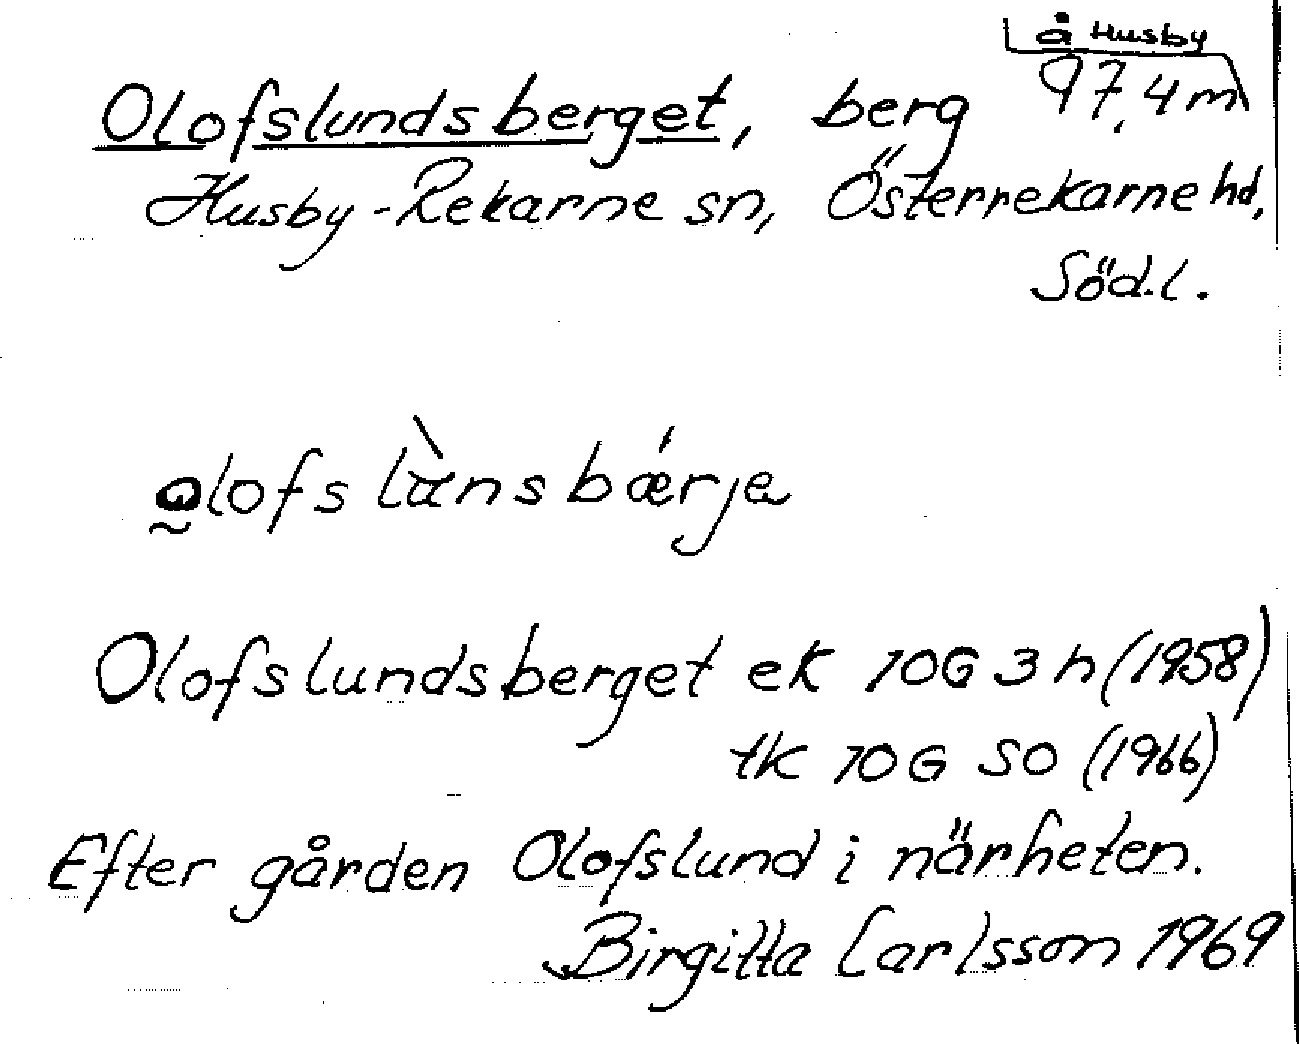 å Husby
Olofslundsberget, berg 97,4 m
Husby-Rekarne sn, Österrekarne hd,
Söd.l.
olofs lànsbǽrjə
Olofslundsberget ek 10G 3h (1958)
tk 10G SO (1966)
Efter gården Olofslund i närheten.
Birgitta Carlsson 1969